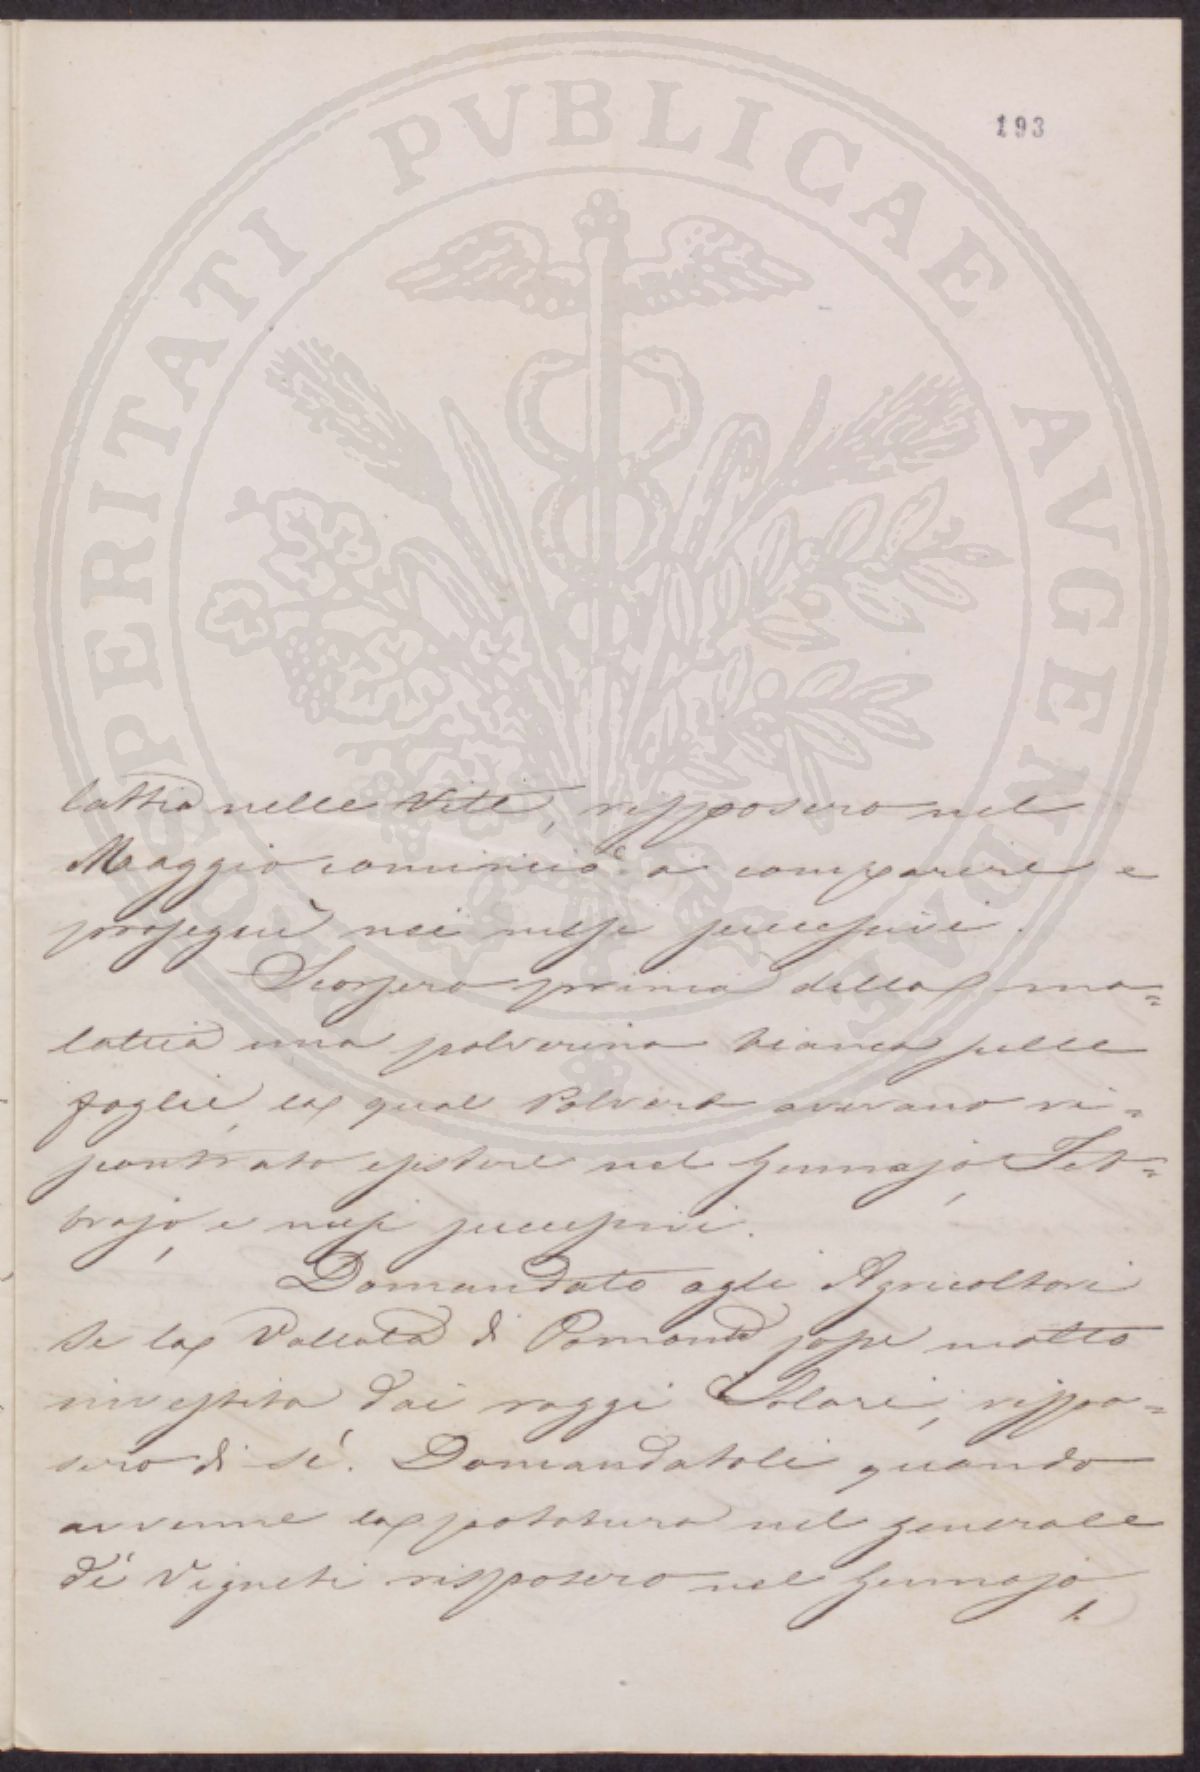 193
PROSPERITATI PVBLICAE AVGENDAE
lattia nelle Viti, risposero nel
Maggio cominciò a comparire e
proseguì nei mesi successivi.
Scorsero prima della ma=
lattia una polverina bianca sulle
foglie, la qual Polvere avevano ri=
scontrato esistere nel Gennajo, Feb=
brajo, e mesi successivi.
Domandato agli Agricoltori
se la Vallata di Pomonte fosse molto
investita dai raggi Solari, rispo=
sero di sì. Domandatoli quando
avvenne la potatura nel generale
dei Vigneti risposero nel Gennajo,